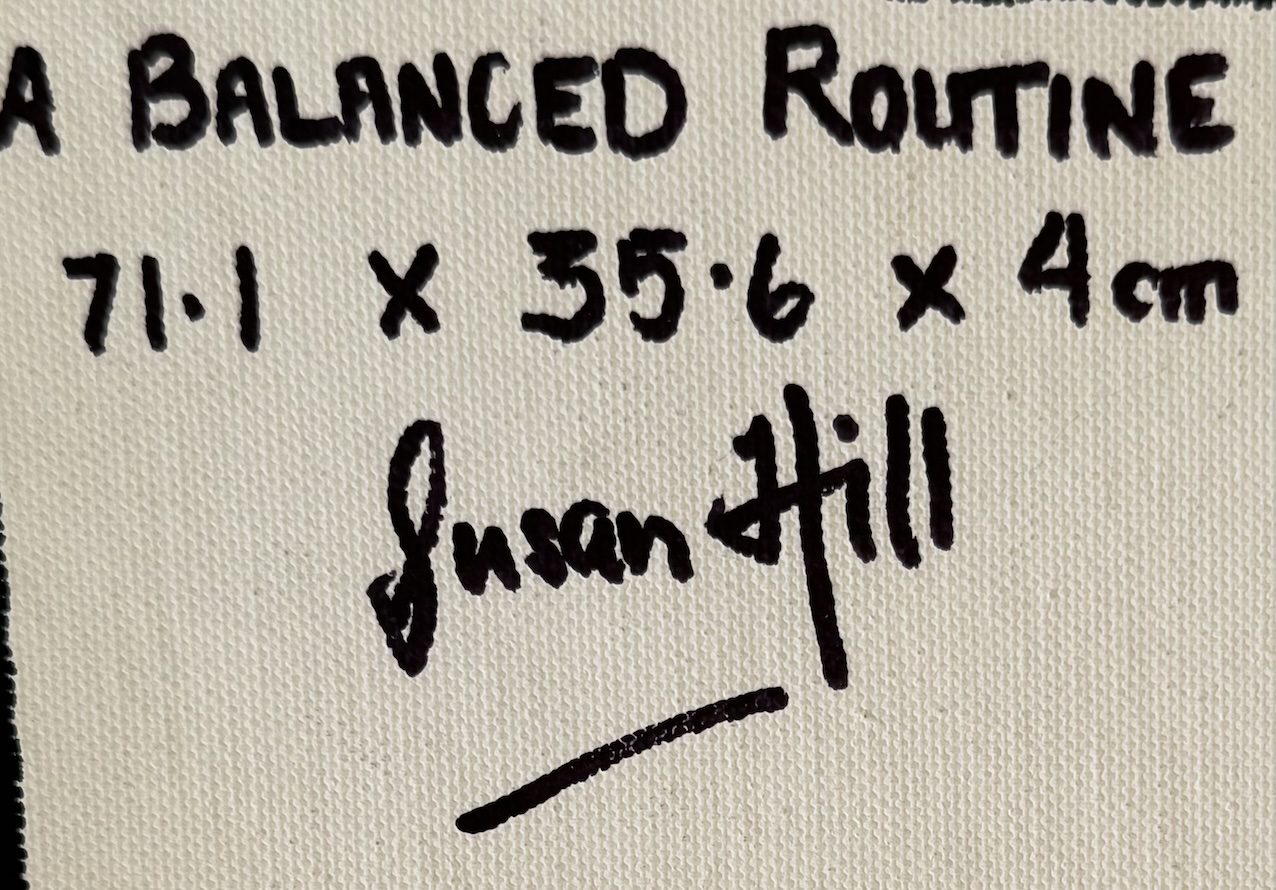 A BALANCED ROUTINE
71.1 x 35.6 x 4cm
Susan Hill